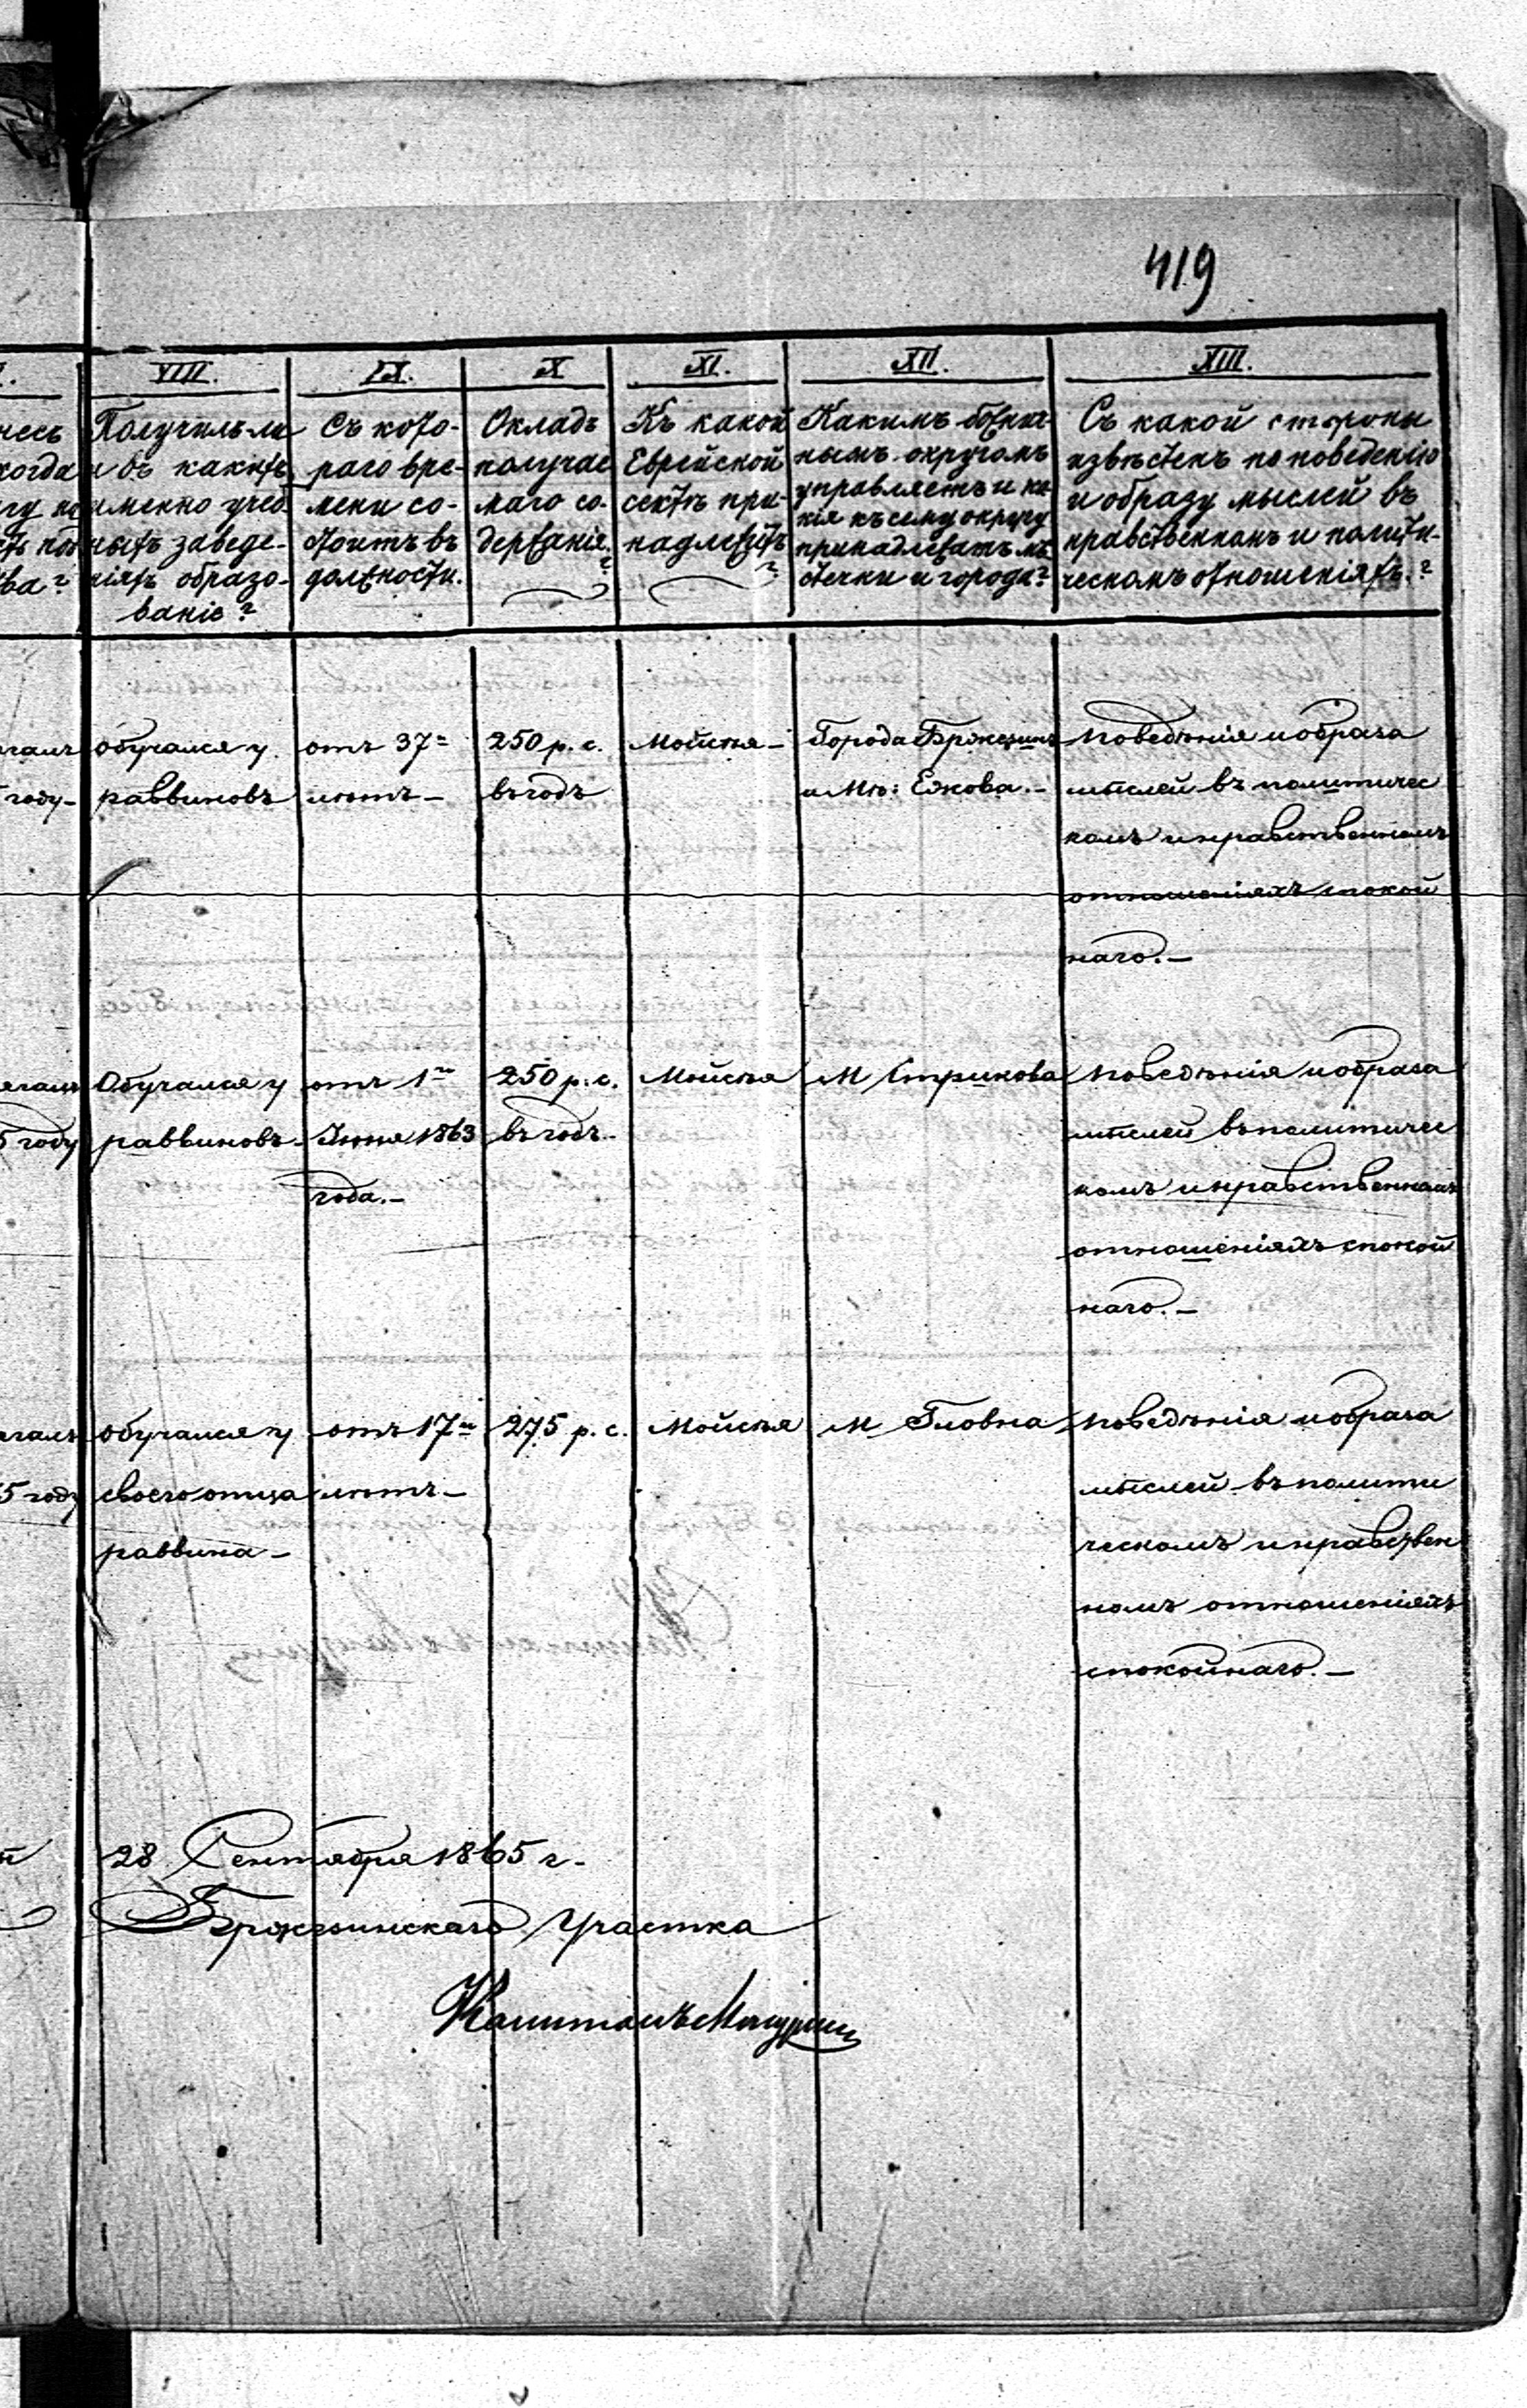 419
VIII. IX. X XI. XII. XIII.
Получилъ-ли
и въ какихъ
именно учеб
ныхъ заведе-
нiяхъ образо-
ванiе?
Съ кото-
раго вре-
мени со-
стоитъ въ
должности.
Окладъ
получае
маго со-
держанiя.
?
Къ какой
Еврейской
сектѣ при-
надлежитъ
?
Какимъ божнич-
нымъ округомъ
управляетъ и ка-
кiя къ сему округу
принадлежатъ мѣ
стечки и города?
Съ какой стороны
извѣстенъ по поведенiю
и образу мыслей въ
нравственномъ и полити-
ческомъ отношенiяхъ.?
обучался у
раввиновъ
отъ 37-
лѣтъ-
250 р. с.
въ годъ
Мойсея-
Города Брж��зинъ
и Мѣ: Ежова.-
поведѣнiя и образа
мыслей въ политичес
комъ и нравственномъ
отношенiяхъ спокой
наго.-
Обучался у
раввиновъ-
отъ 1го
Iюня 1863
года.-
250 р. с.
въ годъ-
Мойсея
М Стрикова
поведѣнiя и образа
мыслей въ политичес
комъ и нравственномъ
отношенiяхъ спокой
наго.-
обучался у
своего отца
раввина-
отъ 17ти
лѣтъ-
275 р. с.
Мойсея
М Гловна
поведѣнiя и образа
мыслей въ полити
ческомъ и нравствен
номъ отношенiяхъ
спокойнаго.-
28 Сентября 1865 г.
Бржезинскаго Участка
Капитанъ